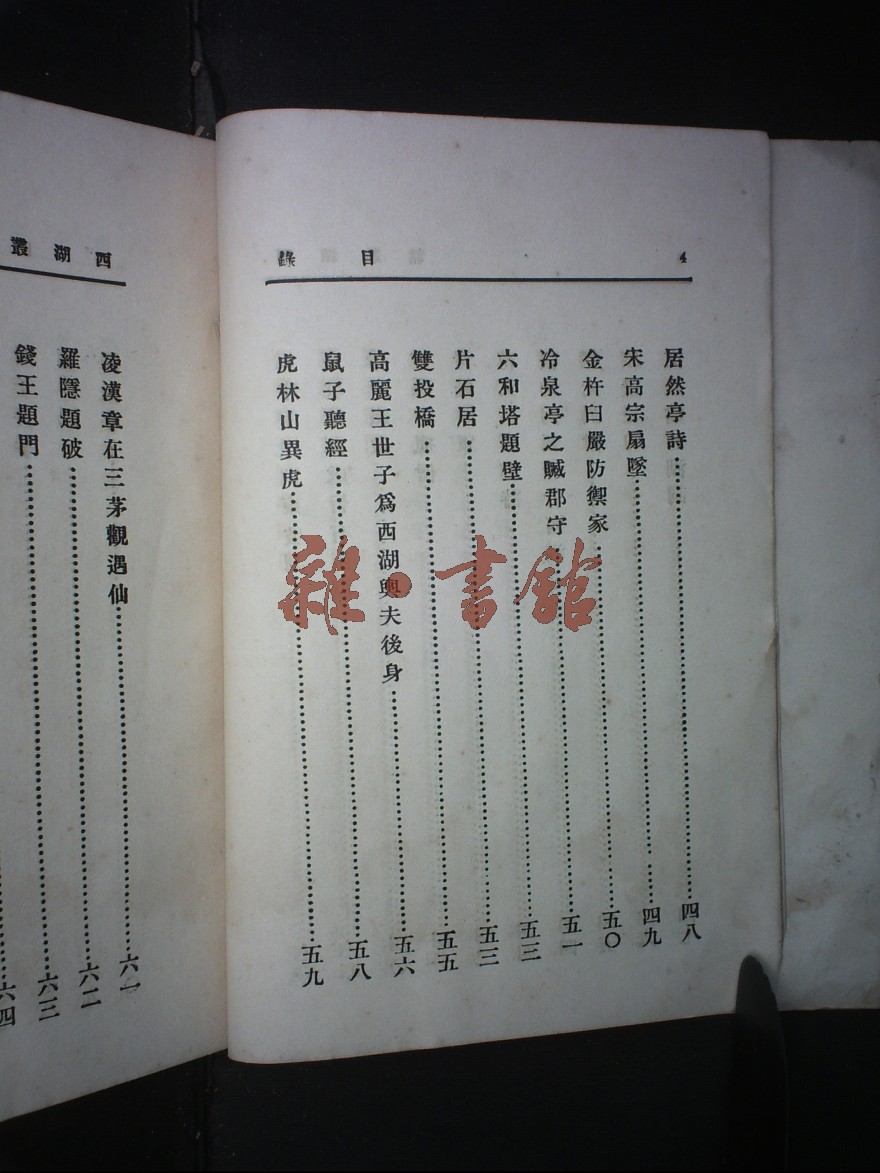 目錄 4
居然亭詩……四八
宋高宗扇墜……四九
金杵臼嚴防禦家……五〇
冷泉亭之贓郡守……五一
六和塔題壁……五三
片石居……五三
雙投橋……五五
高麗王世子爲西湖輿夫後身……五六
鼠子聽經……五八
虎林山異虎……五九
西湖叢
凌漢章在三茅觀遇仙……六一
羅隱題破……六二
錢王題門……六三
六四
雜·書館